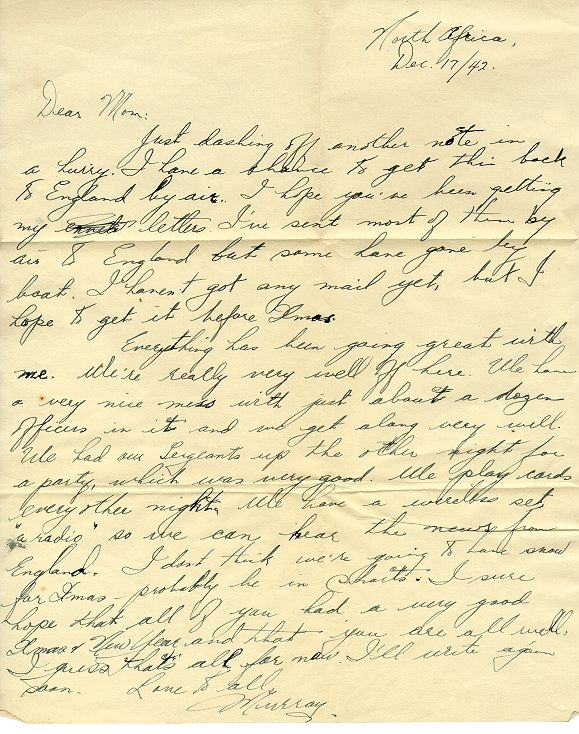 North Africa,
Dec. 17/42.
Dear Mom:
Just dashing off another note in
a hurry. I have a chance to get this back
to England by air. I hope you've been getting
my letters. I've sent most of them by
air to England but some have gone by
boat. I haven't got any mail yet, but I
hope to get it before Xmas.
Everything has been going great with
me. We're really very well off here. We have
a very nice mess with just about a dozen
officers in it and we get along very well.
We had our Sergeants up the other night for
a party, which was very good. We play cards
every other night. We have a wireless set
"a radio" so we can hear the news from
England. I dont think we're going to have snow
for Xmas - probably be in shorts. I sure
hope that all of you had a very good
Xmas & New Year and that you are all well.
I guess that's all for now. I'll write again
soon. Love to all,
Murray.